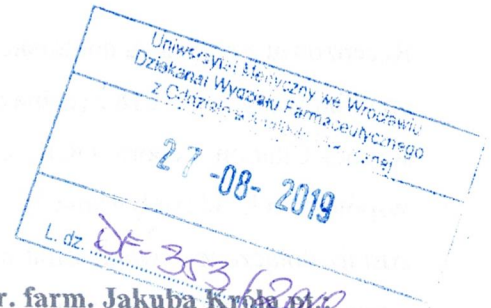 Uniwersytet Medyczny we Wrocławiu
Dziekanat Wydziału Farmaceutycznego
z Oddziałem Analityki Medycznej
27 -08- 2019
L. dz. DF-353/2019
r. farm. Jakuba Króla pt.